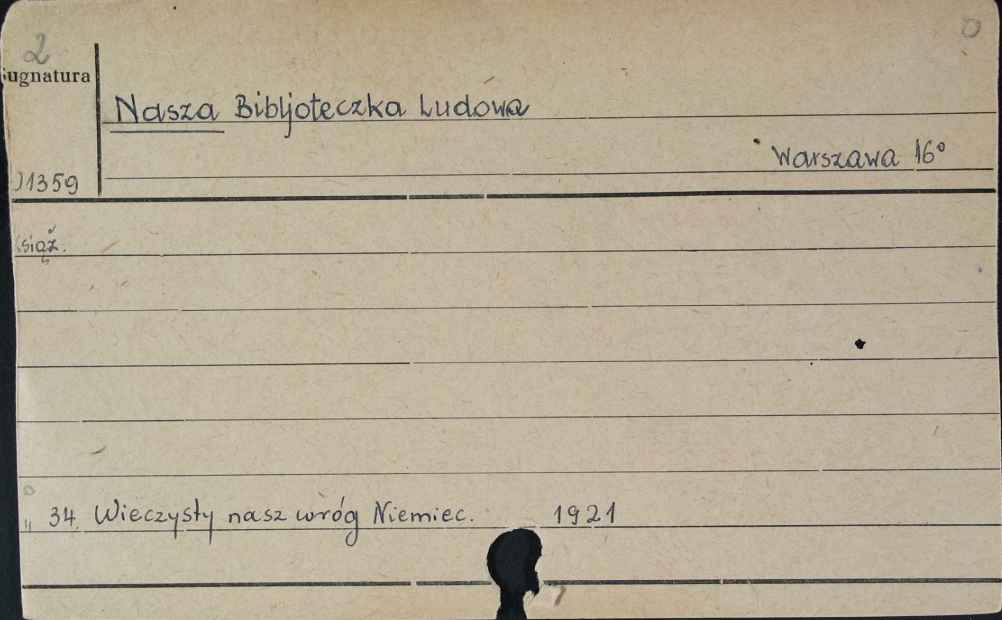 2
Sygnatura
Nasza Bibljoteczka Ludowa
Warszawa 16°
1359
Książ.
" 34. Wieczysty nasz wróg Niemiec. 1921